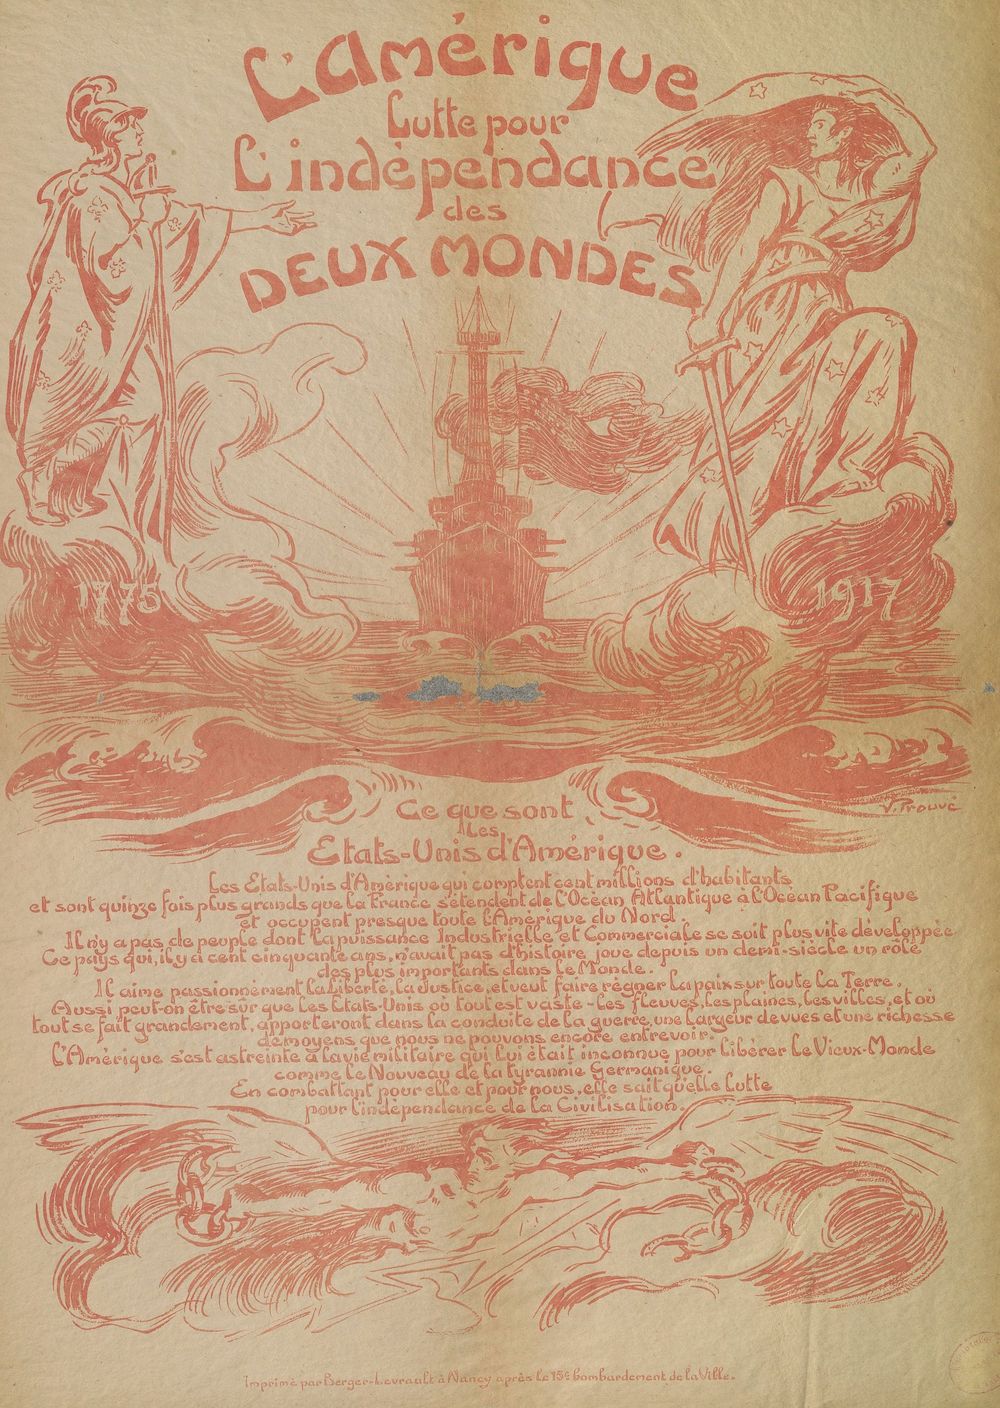 L'Amérique
Lutte pour
L'indépendance
des
DEUX MONDES
1775
1917
V. Prouvé
Ce que sont
Les
Etats-Unis d'Amérique.
Les Etats-Unis d'Amérique qui comptent cent millions d'habitants
et sont quinze fois plus grands que la France s'étendent de l'Océan Atlantique à l'Océan Pacifique
et occupent presque toute l'Amérique du Nord.
Il n'y a pas de peuple dont la puissance Industrielle et Commerciale se soit plus vite développée.
Ce pays qui, il y a cent cinquante ans, n'avait pas d'histoire joue depuis un demi-siècle un rôle
des plus importants dans le Monde.
Il aime passionnément La Liberté, La Justice, et veut faire régner la paix sur toute La Terre.
Aussi peut-on être sûr que les Etats-Unis où tout est vaste - Les fleuves, les plaines, les villes, et où
tout se fait grandement, apporteront dans la conduite de la guerre, une largeur de vues et une richesse
de moyens que nous ne pouvons encore entrevoir.
L'Amérique s'est astreinte à la vie militaire qui lui était inconnue pour libérer Le Vieux-Monde
comme Le Nouveau de la tyrannie Germanique.
En combattant pour elle et pour nous, elle sait qu'elle lutte
pour l'indépendance de la Civilisation.
Imprimé par Berger-Levrault à Nancy après le 15e bombardement de la Ville.